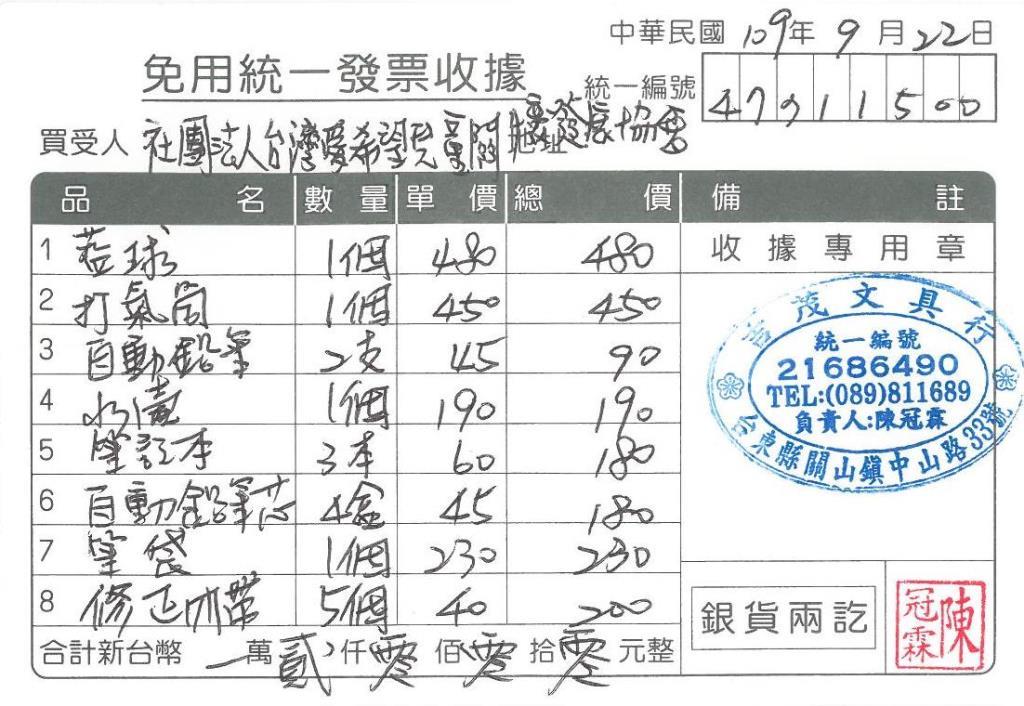 中華民國 109年 9月22日
免用統一發票收據
統一編號 47911500
買受人 社團法人台灣愛希望兒童關懷發展協會 地址
品名 數量 單價 總價 備註
1 藍球 1個 480 480 收據專用章
2 打氣筒 1個 450 450
3 自動鉛筆 2支 45 90
4 水壺 1個 190 190
5 筆記本 3本 60 180
6 自動鉛筆芯 4盒 45 180
7 筆袋 1個 230 230
8 修正帶 5個 40 200
吉茂文具行
統一編號
21686490
TEL:(089)811689
負責人:陳冠霖
台東縣關山鎮中山路33號
銀貨兩訖
陳冠霖
合計新台幣 萬貳仟零佰零拾零元整